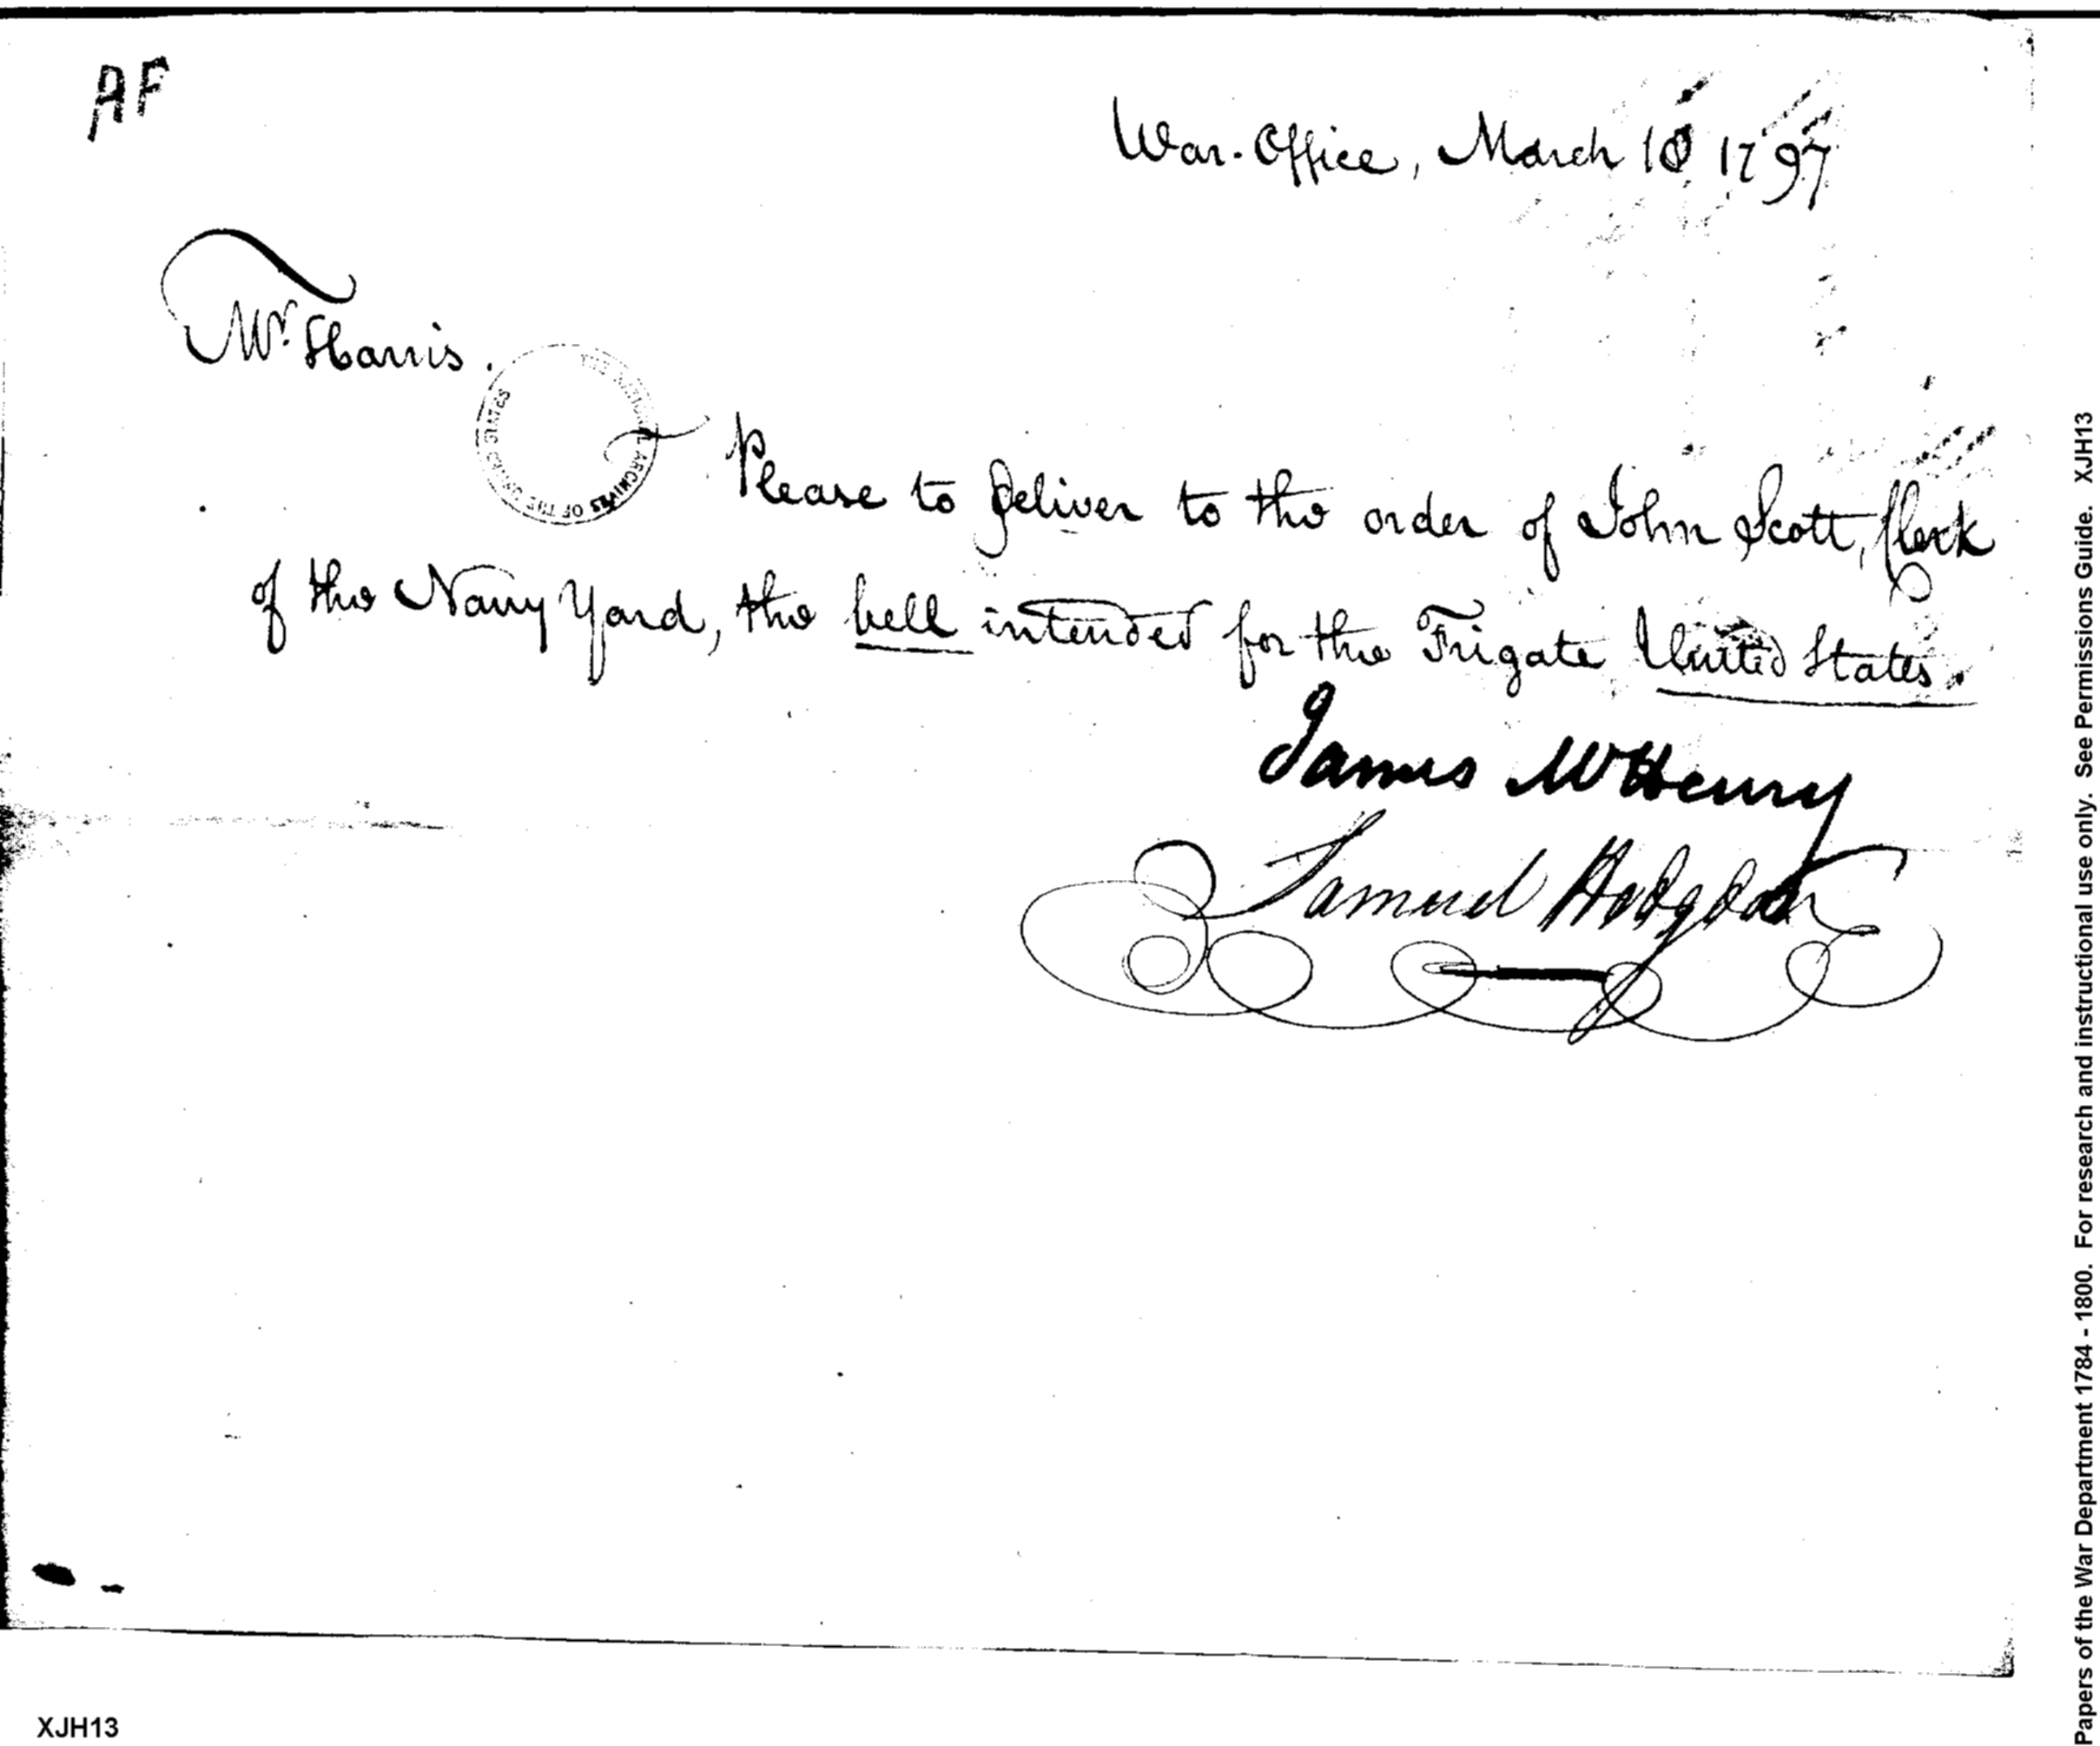 AF
War-Office, March 10 1797
Mr. Harris.
THE NATIONAL ARCHIVES OF THE UNITED STATES
Please to deliver to the order of John Scott, Clerk
of the Navy Yard, the bell intended for the Frigate United States.
James McHenry
Samuel Hodgdon
XJH13
Papers of the War Department 1784 - 1800. For research and instructional use only. See Permissions Guide. XJH13